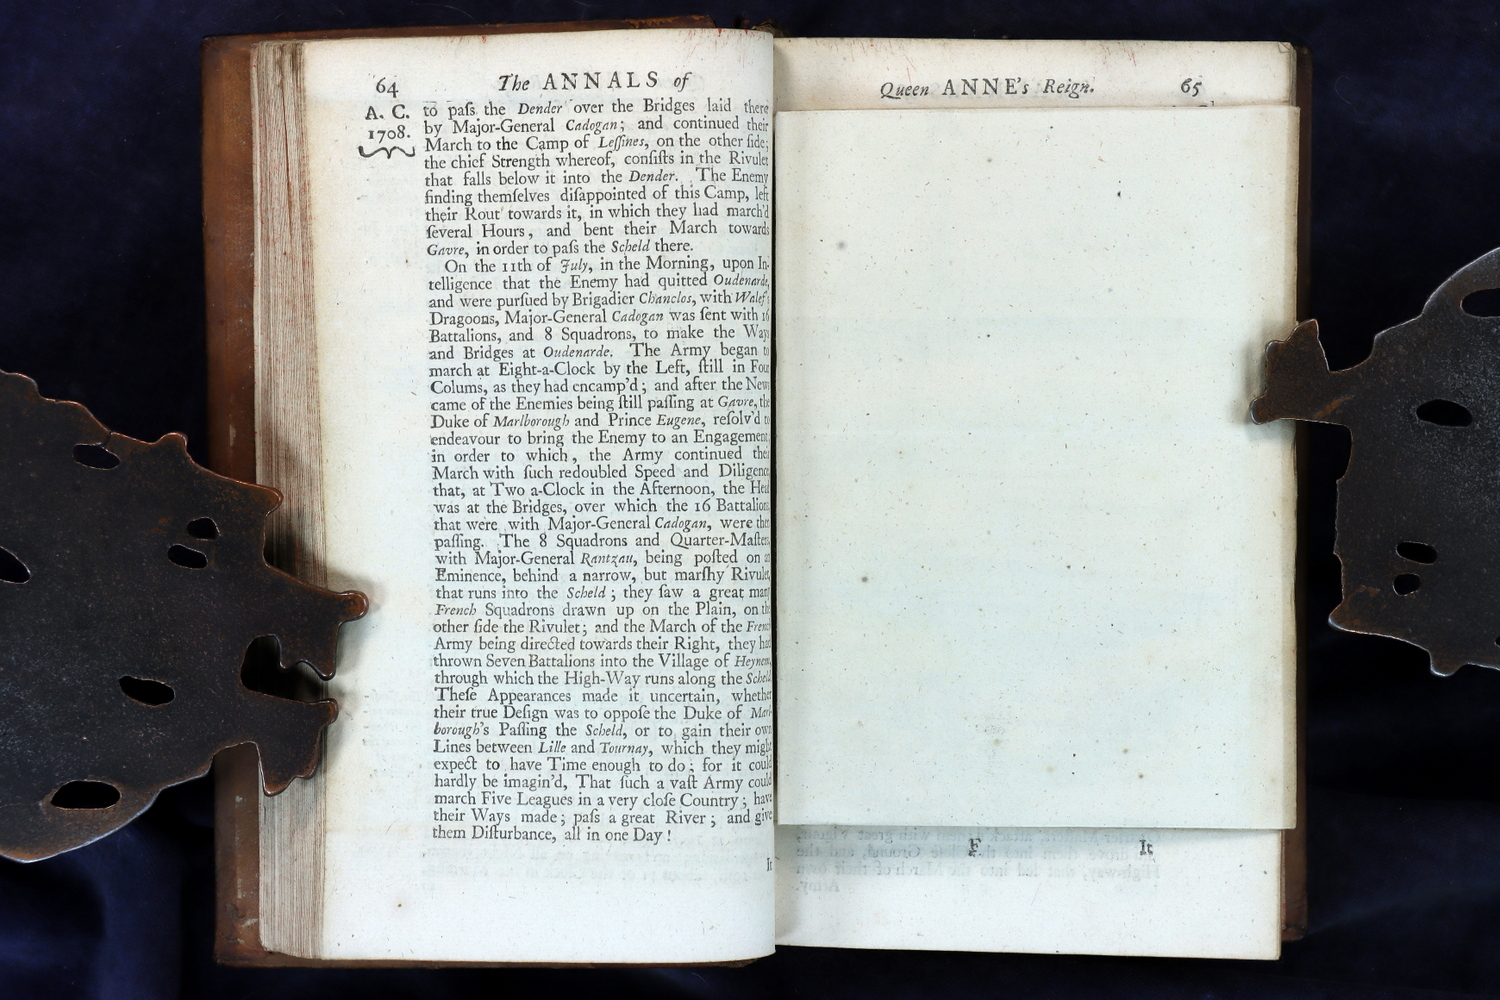 64
The ANNALS of
A. C.
1708.
to paſs the Dender over the Bridges laid there
by Major-General Cadogan; and continued their
March to the Camp of Leſſines, on the other ſide;
the chief Strength whereof, conſiſts in the Rivulet
that falls below it into the Dender. The Enemy
finding themſelves diſappointed of this Camp, left
their Rout towards it, in which they had march'd
ſeveral Hours, and bent their March towards
Gavre, in order to paſs the Scheld there.
On the 11th of July, in the Morning, upon In-
telligence that the Enemy had quitted Oudenarde,
and were purſued by Brigadier Chanclos, with Walef's
Dragoons, Major-General Cadogan was ſent with 16
Battalions, and 8 Squadrons, to make the Ways
and Bridges at Oudenarde. The Army began to
march at Eight-a-Clock by the Left, ſtill in Four
Colums, as they had encamp'd; and after the News
came of the Enemies being ſtill paſſing at Gavre, the
Duke of Marlborough and Prince Eugene, reſolv'd to
endeavour to bring the Enemy to an Engagement;
in order to which, the Army continued their
March with ſuch redoubled Speed and Diligence
that, at Two a-Clock in the Afternoon, the Head
was at the Bridges, over which the 16 Battalions,
that were with Major-General Cadogan, were then
paſſing. The 8 Squadrons and Quarter-Maſters,
with Major-General Rantzau, being poſted on an
Eminence, behind a narrow, but marſhy Rivulet,
that runs into the Scheld; they ſaw a great many
French Squadrons drawn up on the Plain, on the
other ſide the Rivulet; and the March of the French
Army being directed towards their Right, they had
thrown Seven Battalions into the Village of Heynem,
through which the High-Way runs along the Scheld.
Theſe Appearances made it uncertain, whether
their true Deſign was to oppoſe the Duke of Marl-
borough's Paſſing the Scheld, or to gain their own
Lines between Lille and Tournay, which they might
expect to have Time enough to do; for it could
hardly be imagin'd, That ſuch a vaſt Army could
march Five Leagues in a very cloſe Country; have
their Ways made; paſs a great River; and give
them Diſturbance, all in one Day!
It
Queen ANNE's Reign.
65
F
It